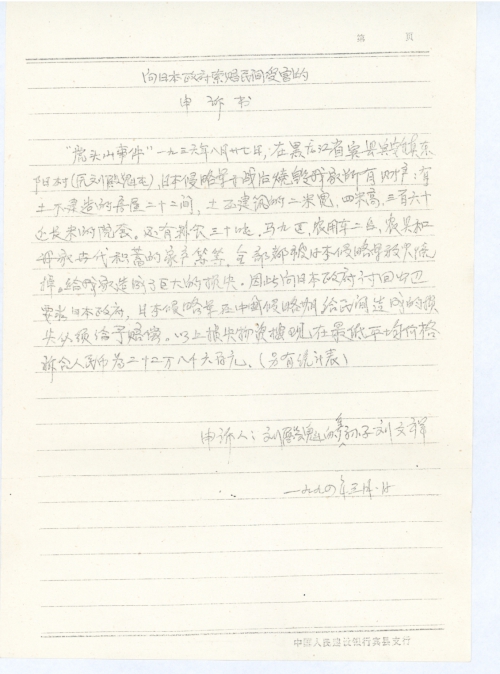 第 页
向日本政府索赔民间受害的
申诉书
"虎头山事件"一九三六年八月廿七日,在黑龙江省宾县宾安镇东
阳村(原刘殿魁屯),日本侵略军 烧毁我家所有财产:有
土木建造的房屋二十二间,土石建调的二米宽,四米高,三百六十
还有粮谷三十吨,马九匹,农用车二台,农具和
我家世代积蓄的家产等等,全部都被日本侵略军放火烧
掉。给我家造成了巨大的损失。因此向日本政府讨回公正
要求日本政府,日本侵略军在中国侵略期给民间造成的损
失必须给予赔偿。以上损失物资 现在最低平均价格
折合人民币为二十二万八千六百元。(另有统计表)
申诉人:刘殿魁的 孙子刘文祥
一九九四年三月 日
中国人民建设银行宾县支行